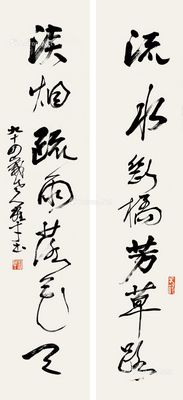 流水断橋芳草路
淡烟疏雨落花天
九十四歲老人